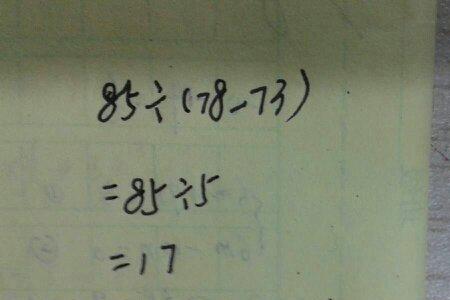 85÷(78-73)
=85÷5
=17